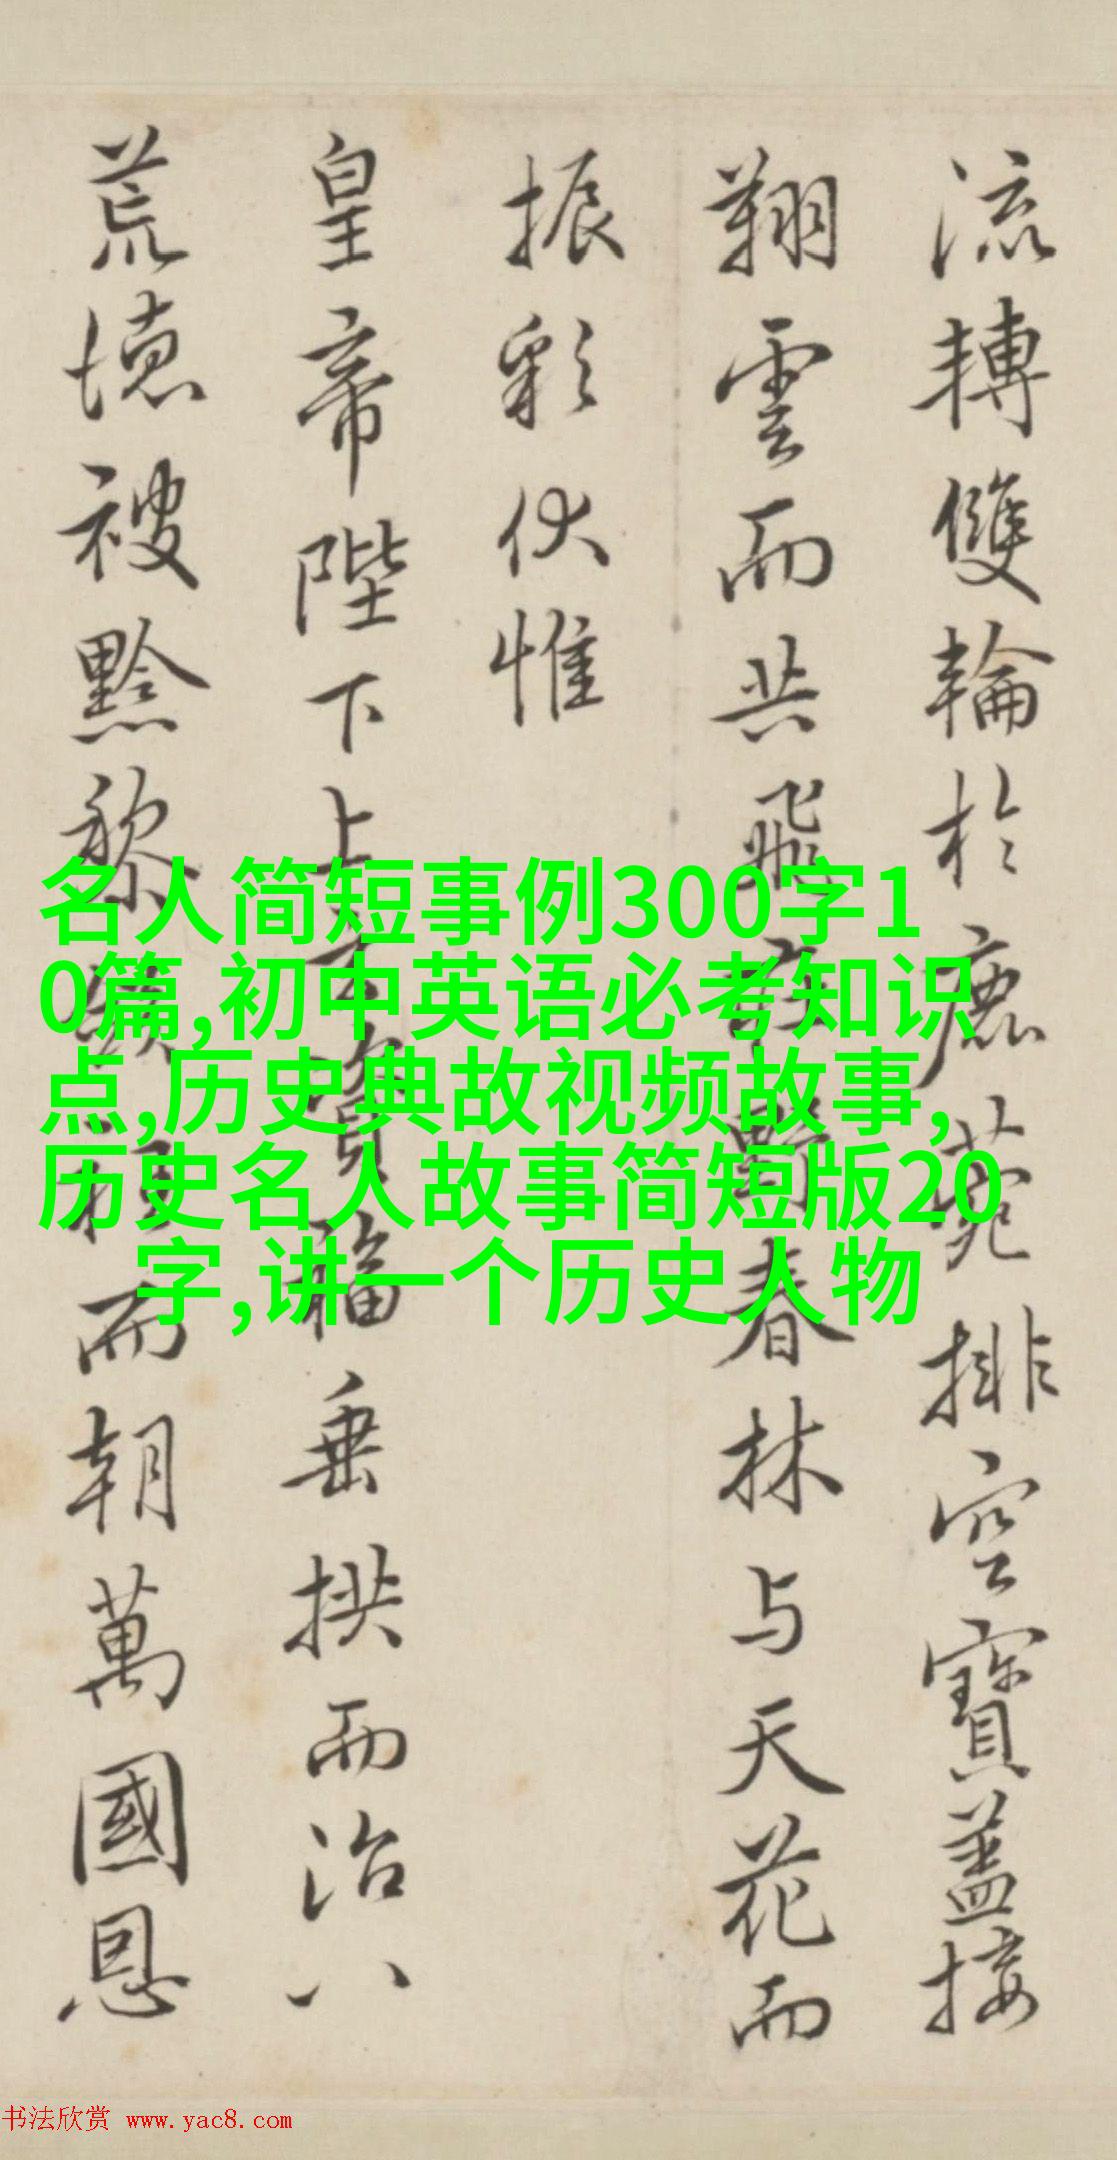 流轉雙輪於鹿苑排空寶蓋接
翔雲而共飛野春林与天花而
振彩伏惟
皇帝陛下上福垂拱而治八
荒德被黔黎而朝萬國恩
名人简短事例300字1
0篇,初中英语必考知识
点,历史典故视频故事,
历史名人故事简短版20
字,讲一个历史人物
书法欣赏 www.yac8.com